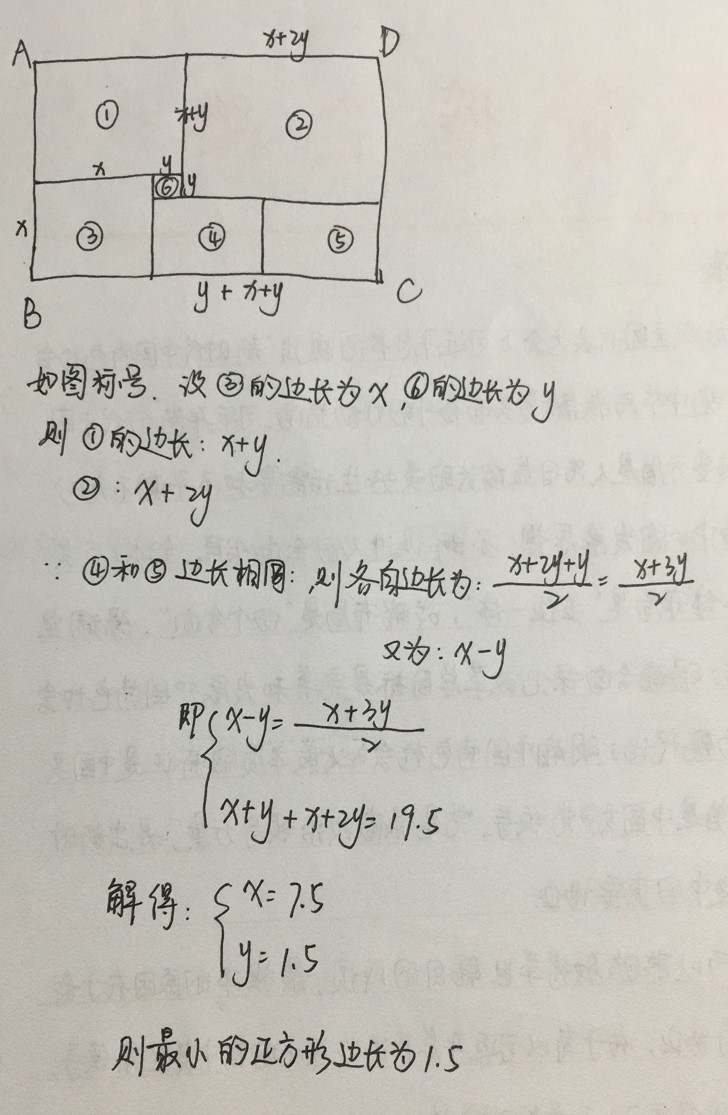 x+2y
A
D
①
x+y
②
x
y
⑥
y
x
③
④
⑤
B
y + x+y
C
如图标号. 设③的边长为x,⑥的边长为y
则①的边长: x+y.
②: x+2y
∵ ④和⑤边长相同:,则各自边长为: (x+2y+y)/2 = (x+3y)/2
又为: x-y
即{ x-y= (x+3y)/2
x+y+x+2y=19.5
解得: { x=7.5
y=1.5
则最小的正方形边长为1.5